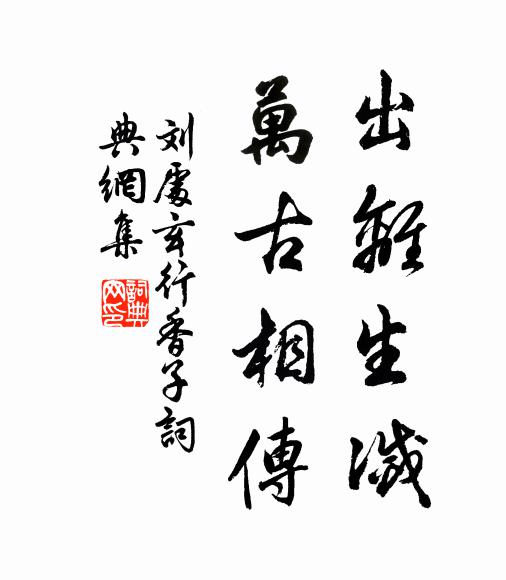 出離生滅
萬古相傳
刘處玄行香子詞
典網集
詞典
网印